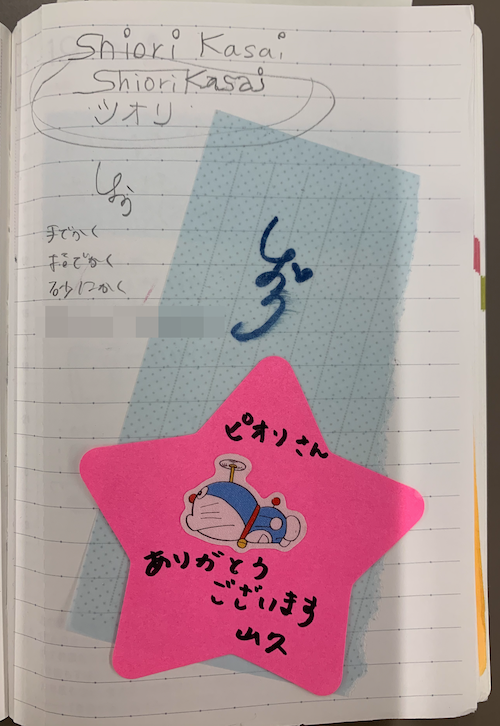 Shiori Kasai
Shiori Kasai
ツオリ
手でかく
指でかく
砂にかく
ピオリさん
ありがとう
ございます
山久